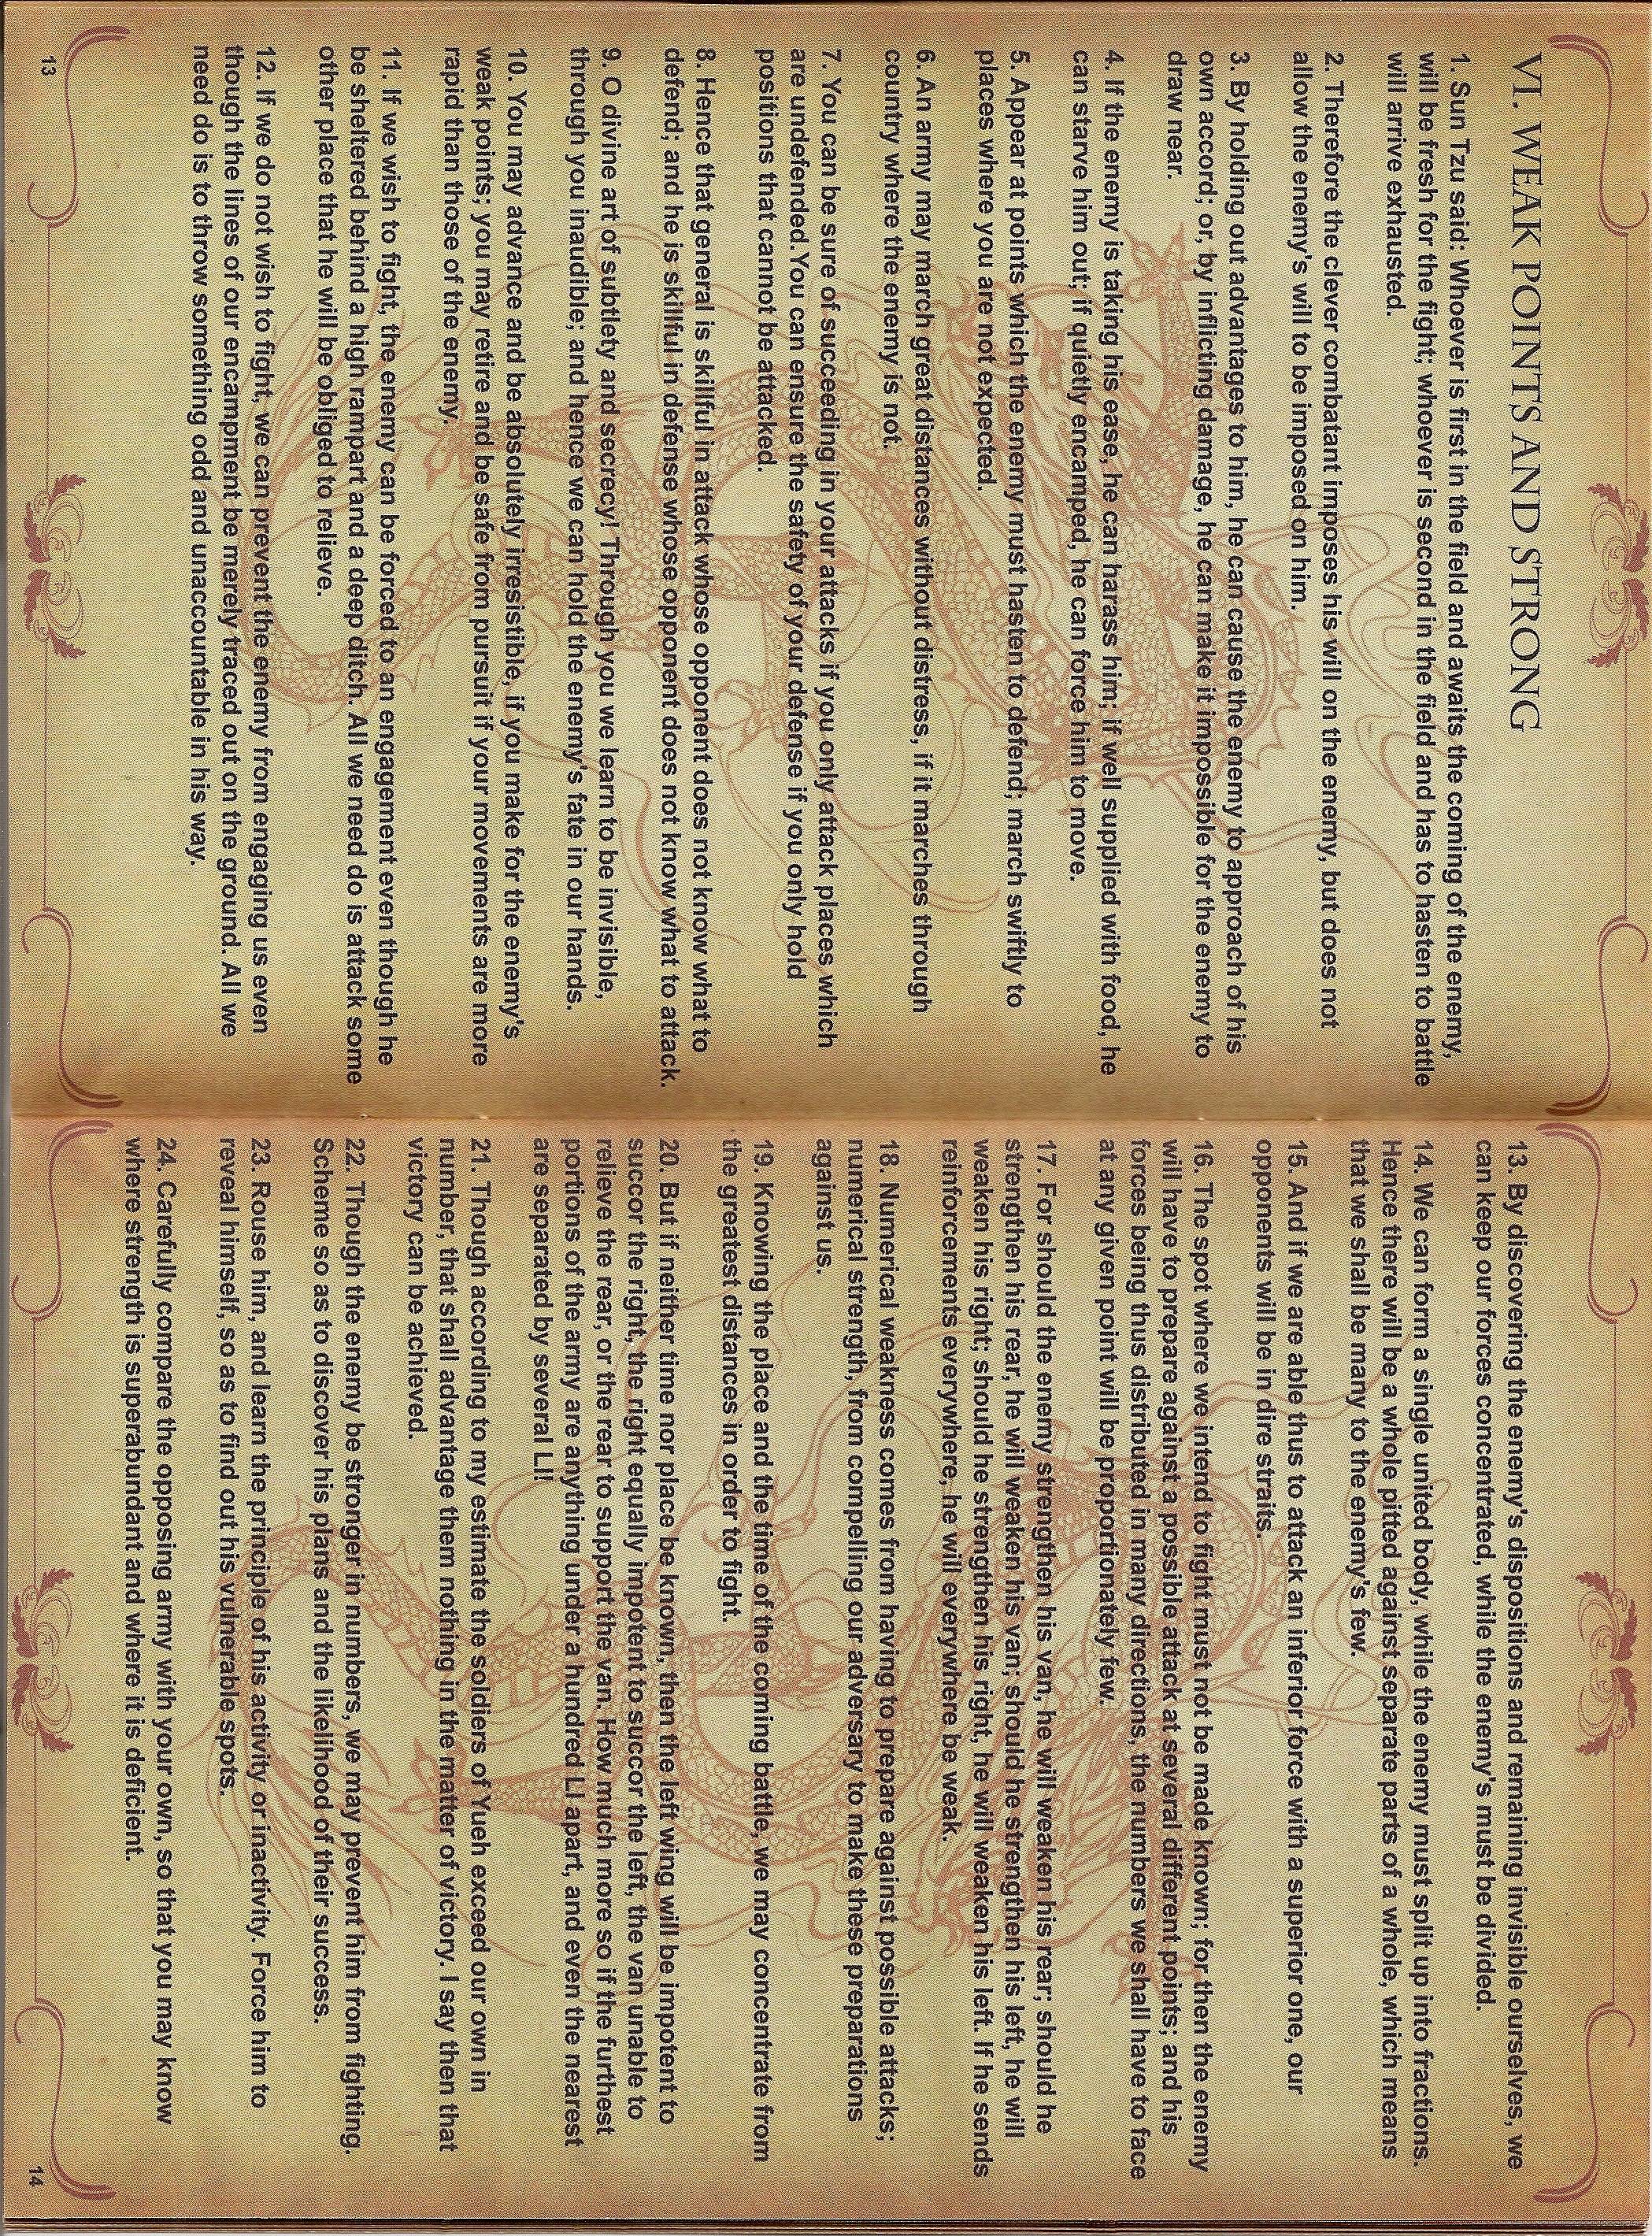 VI. WEAK POINTS AND STRONG
1. Sun Tzu said: Whoever is first in the field and awaits the coming of the enemy,
will be fresh for the fight; whoever is second in the field and has to hasten to battle
will arrive exhausted.
2. Therefore the clever combatant imposes his will on the enemy, but does not
allow the enemy's will to be imposed on him.
3. By holding out advantages to him, he can cause the enemy to approach of his
own accord; or, by inflicting damage, he can make it impossible for the enemy to
draw near.
4. If the enemy is taking his ease, he can harass him; if well supplied with food, he
can starve him out; if quietly encamped, he can force him to move.
5. Appear at points which the enemy must hasten to defend; march swiftly to
places where you are not expected.
6. An army may march great distances without distress, if it marches through
country where the enemy is not.
7. You can be sure of succeeding in your attacks if you only attack places which
are undefended. You can ensure the safety of your defense if you only hold
positions that cannot be attacked.
8. Hence that general is skillful in attack whose opponent does not know what to
defend; and he is skillful in defense whose opponent does not know what to attack.
9. O divine art of subtlety and secrecy! Through you we learn to be invisible,
through you inaudible; and hence we can hold the enemy's fate in our hands.
10. You may advance and be absolutely irresistible, if you make for the enemy's
weak points; you may retire and be safe from pursuit if your movements are more
rapid than those of the enemy.
11. If we wish to fight, the enemy can be forced to an engagement even though he
be sheltered behind a high rampart and a deep ditch. All we need do is attack some
other place that he will be obliged to relieve.
12. If we do not wish to fight, we can prevent the enemy from engaging us even
though the lines of our encampment be merely traced out on the ground. All we
need do is to throw something odd and unaccountable in his way.
13
13. By discovering the enemy's dispositions and remaining invisible ourselves, we
can keep our forces concentrated, while the enemy's must be divided.
14. We can form a single united body, while the enemy must split up into fractions.
Hence there will be a whole pitted against separate parts of a whole, which means
that we shall be many to the enemy's few.
15. And if we are able thus to attack an inferior force with a superior one, our
opponents will be in dire straits.
16. The spot where we intend to fight must not be made known; for then the enemy
will have to prepare against a possible attack at several different points; and his
forces being thus distributed in many directions, the numbers we shall have to face
at any given point will be proportionately few.
17. For should the enemy strengthen his van, he will weaken his rear; should he
strengthen his rear, he will weaken his van; should he strengthen his left, he will
weaken his right; should he strengthen his right, he will weaken his left. If he sends
reinforcements everywhere, he will everywhere be weak.
18. Numerical weakness comes from having to prepare against possible attacks;
numerical strength, from compelling our adversary to make these preparations
against us.
19. Knowing the place and the time of the coming battle, we may concentrate from
the greatest distances in order to fight.
20. But if neither time nor place be known, then the left wing will be impotent to
succor the right, the right equally impotent to succor the left, the van unable to
relieve the rear, or the rear to support the van. How much more so if the furthest
portions of the army are anything under a hundred LI apart, and even the nearest
are separated by several LI!
21. Though according to my estimate the soldiers of Yueh exceed our own in
number, that shall advantage them nothing in the matter of victory. I say then that
victory can be achieved.
22. Though the enemy be stronger in numbers, we may prevent him from fighting.
Scheme so as to discover his plans and the likelihood of their success.
23. Rouse him, and learn the principle of his activity or inactivity. Force him to
reveal himself, so as to find out his vulnerable spots.
24. Carefully compare the opposing army with your own, so that you may know
where strength is superabundant and where it is deficient.
14